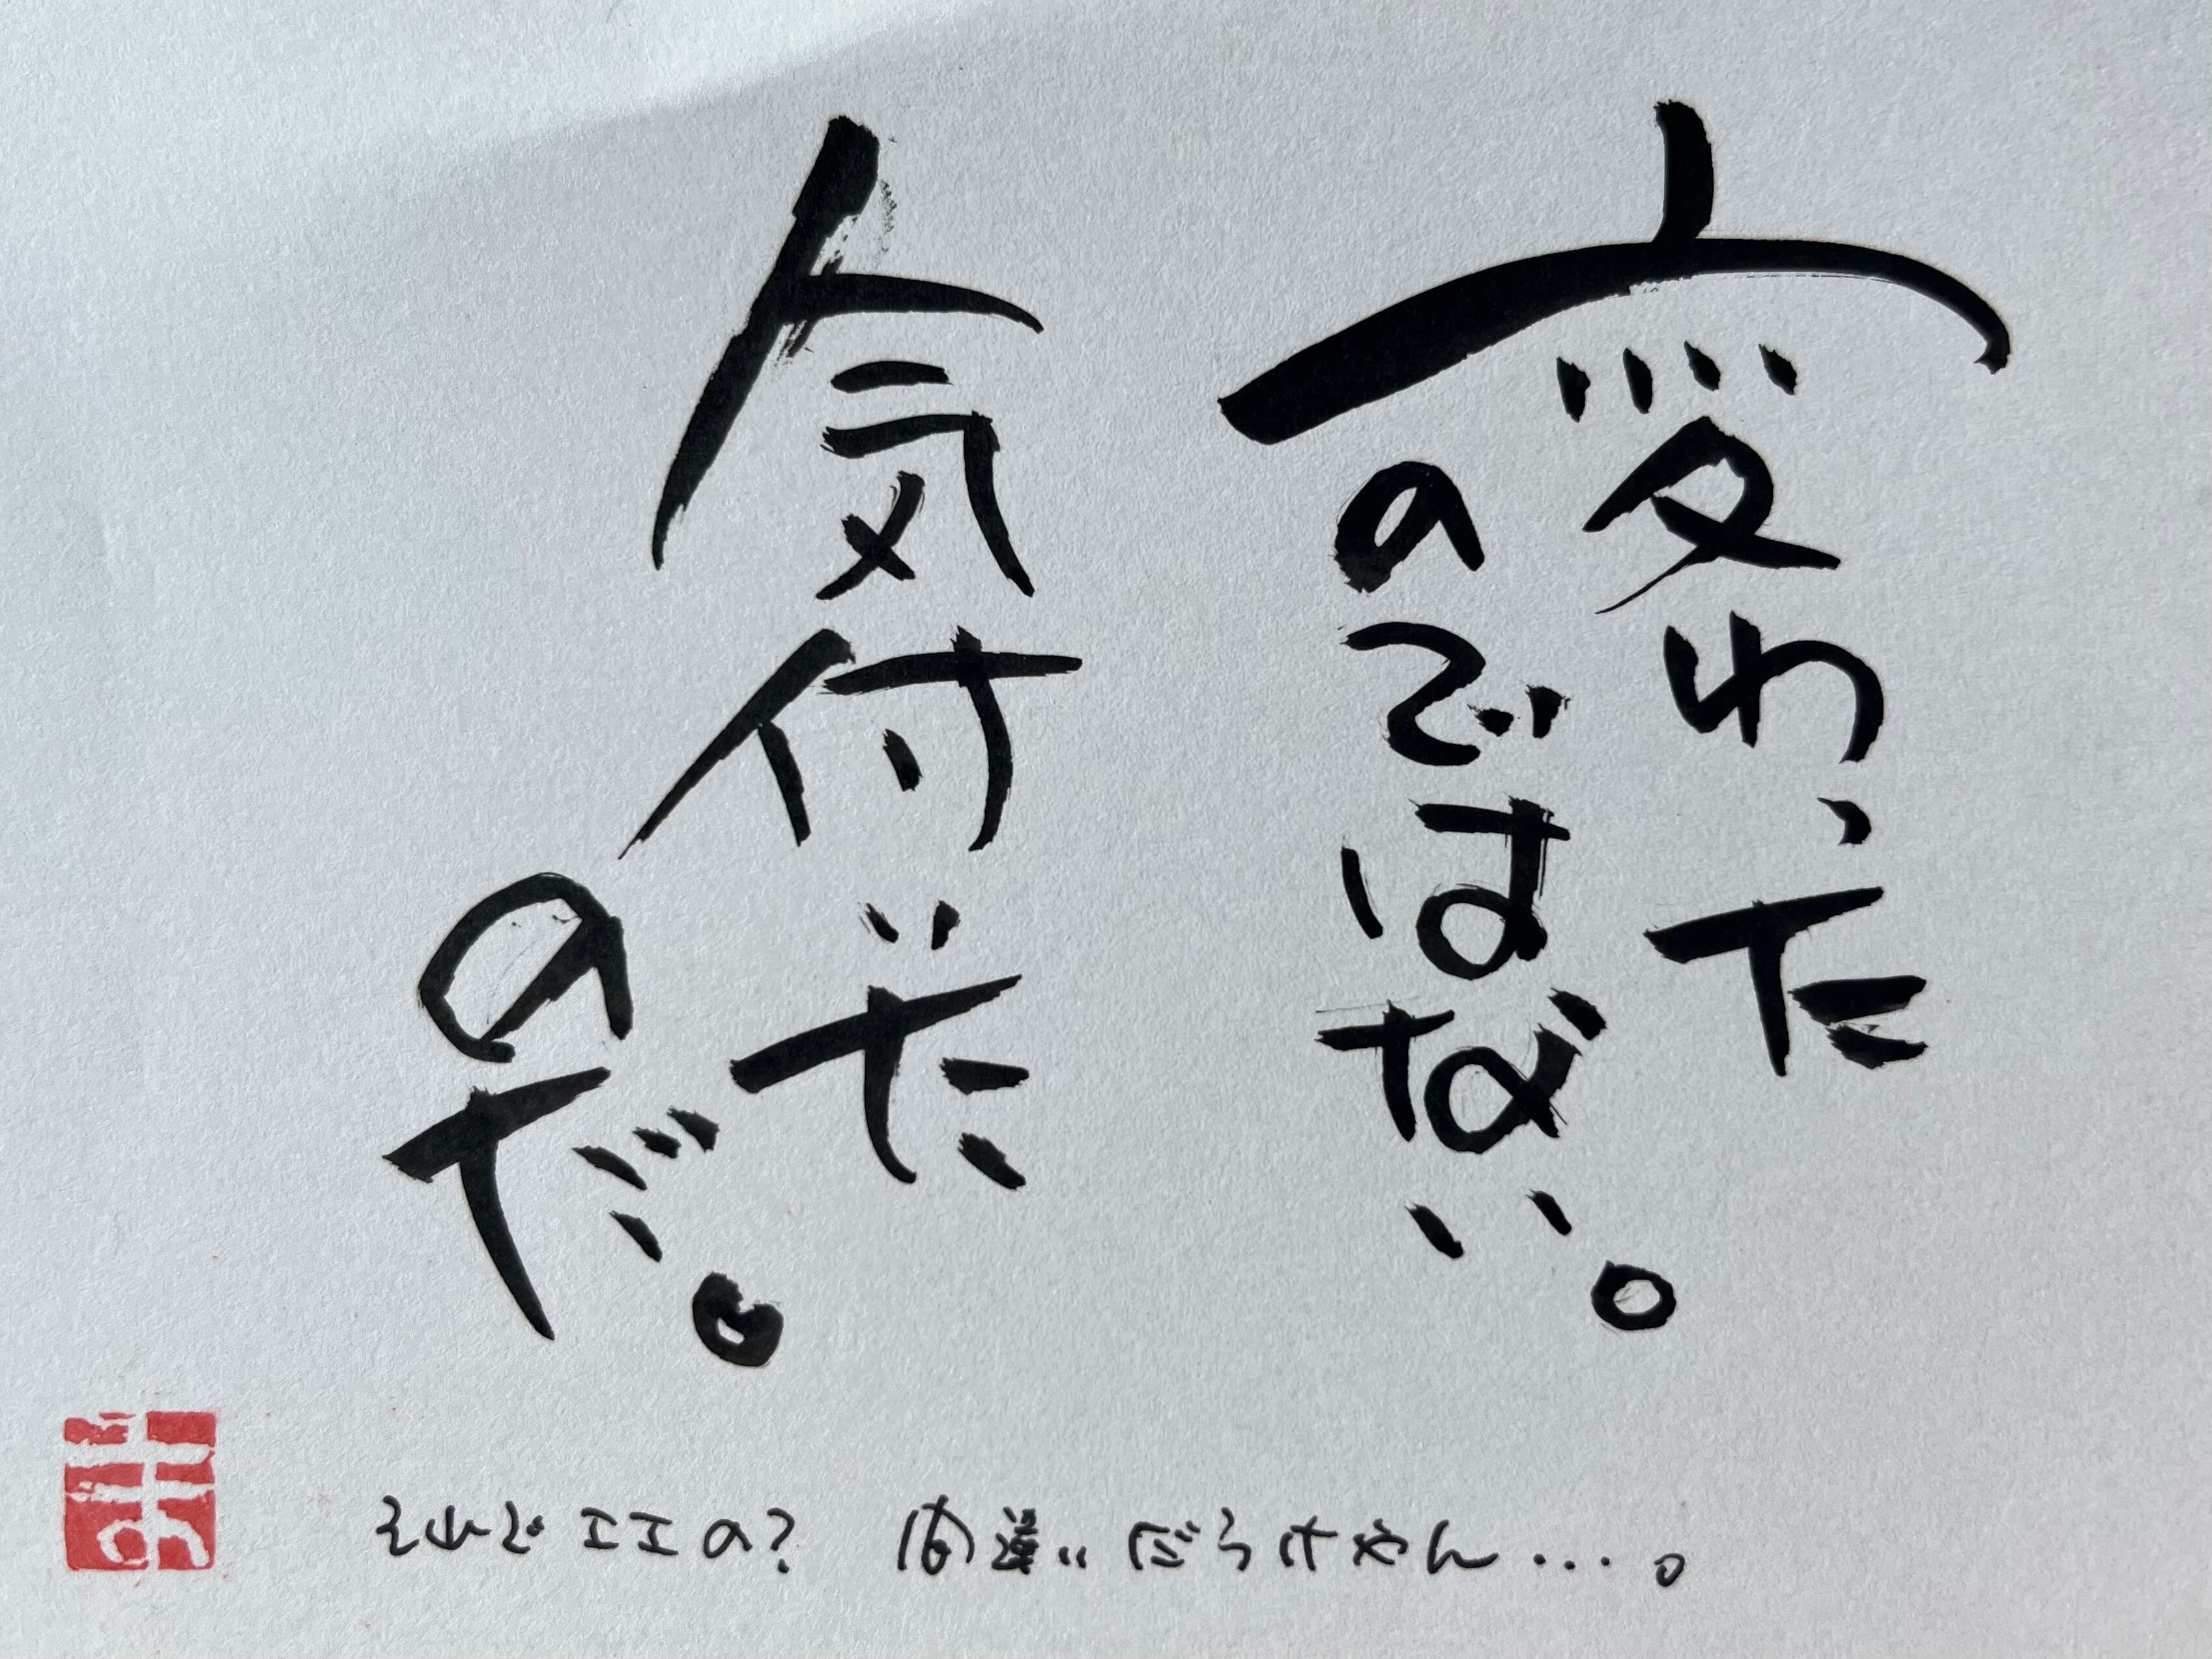 変わった
のではない。
気付いた
のだ。
それでエエの? 間違いだらけやん・・・。
ま